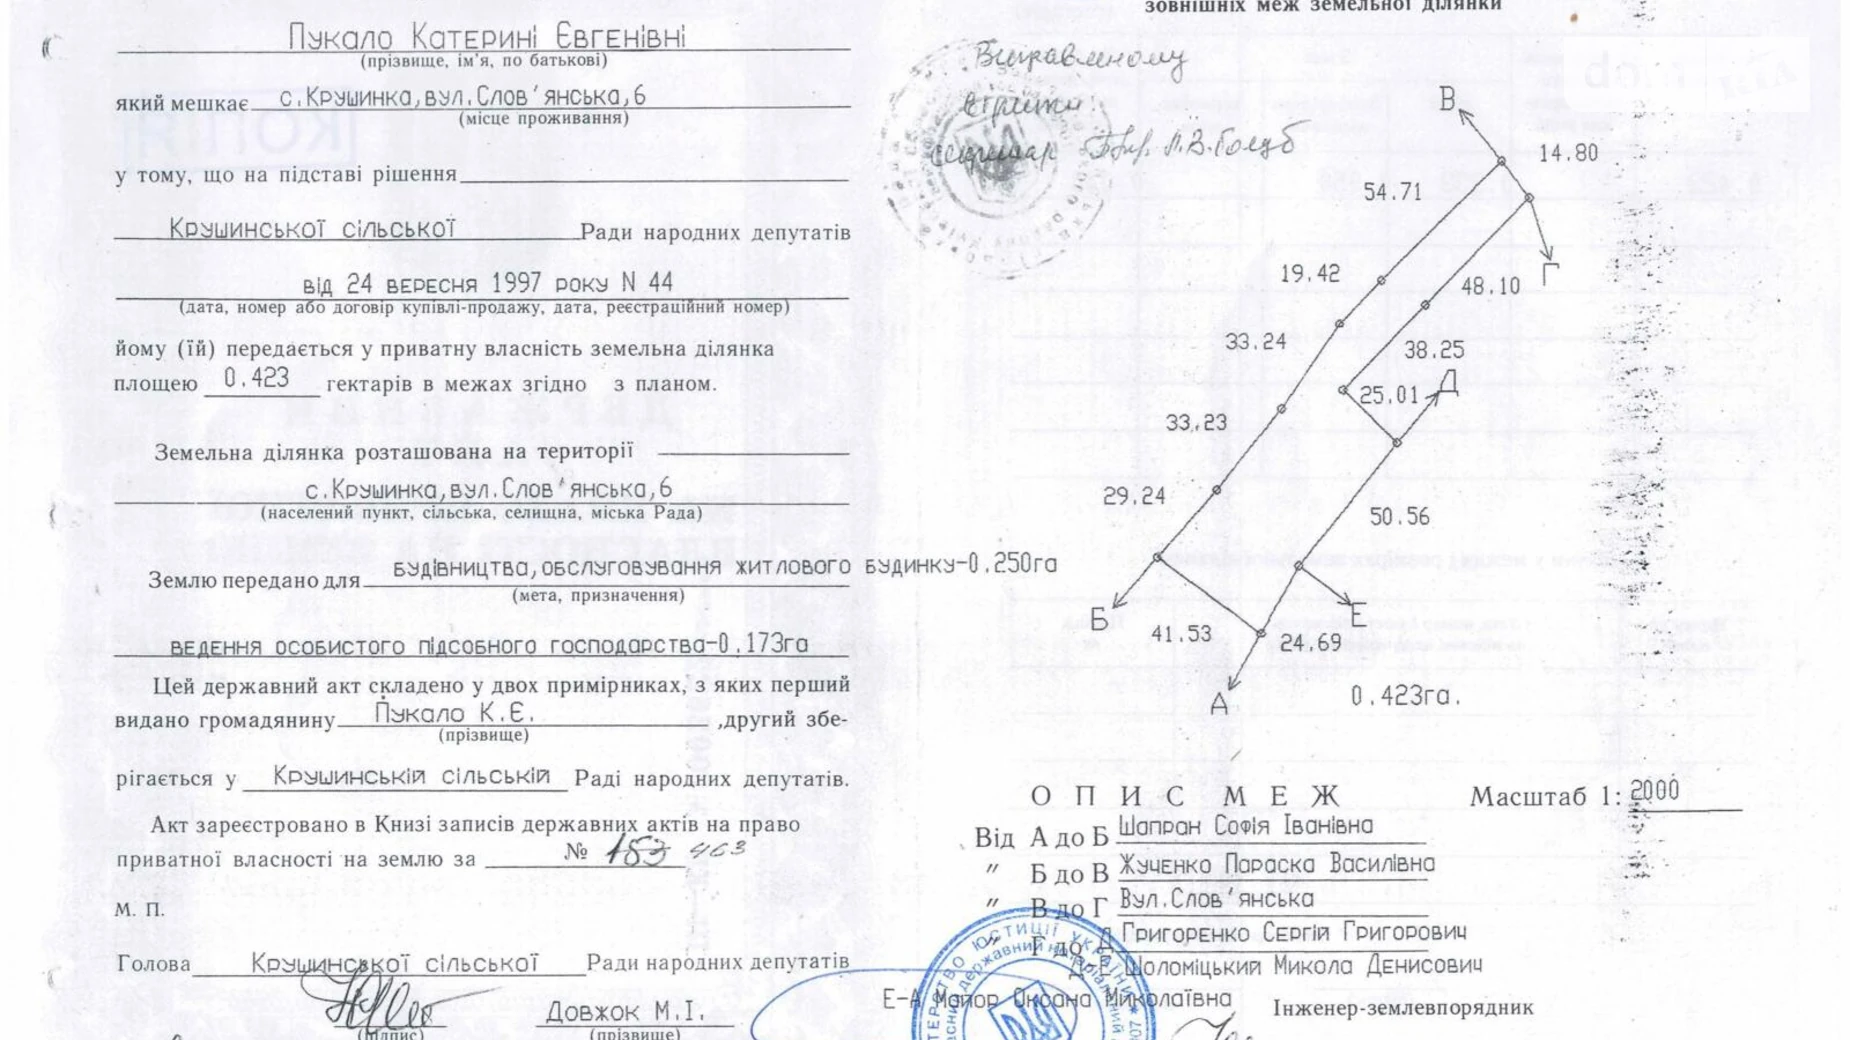 Пукало Катерині Євгенівні
(прізвище, ім'я, по батькові)
який мешкає с.Крушинка,вул.Слов'янська,6
(місце проживання)
у тому, що на підставі рішення
Крушинської сільської Ради народних депутатів
від 24 вересня 1997 року N 44
(дата, номер або договір купівлі-продажу, дата, реєстраційний номер)
йому (їй) передається у приватну власність земельна ділянка
площею 0.423 гектарів в межах згідно з планом.
Земельна ділянка розташована на території
с.Крушинка,вул.Слов'янська,6
(населений пункт, сільська, селищна, міська Рада)
Землю передано для будівництва,обслуговування житлового будинку-0.250га
(мета, призначення)
ведення особистого підсобного господарства-0.173га
Цей державний акт складено у двох примірниках, з яких перший
видано громадянину Пукало К.Є. ,другий збе-
(прізвище)
рігається у Крушинській сільській Раді народних депутатів.
Акт зареєстровано в Книзі записів державних актів на право
приватної власності на землю за № 153 463
М. П.
Голова Крушинської сільської Ради народних депутатів
Довжок М.І.
(підпис) (прізвище)
зовнішніх меж земельної ділянки
Виправленому
вірити
секретар Л.В.Голуб
КОПІЯ
В
14.80
54.71
Г
19.42
48.10
33.24
38.25
Д
25.01
33.23
29.24
50.56
Б
Е
41.53
24.69
А
0.423га.
ОПИС МЕЖ Масштаб 1: 2000
Від А до Б Шапран Софія Іванівна
" Б до В Жученко Параска Василівна
" В до Г Вул.Слов'янська
" Г до Д Григоренко Сергій Григорович
Д-Е Шоломіцький Микола Денисович
Е-А Мапор Оксана Миколаївна
Інженер-землевпорядник